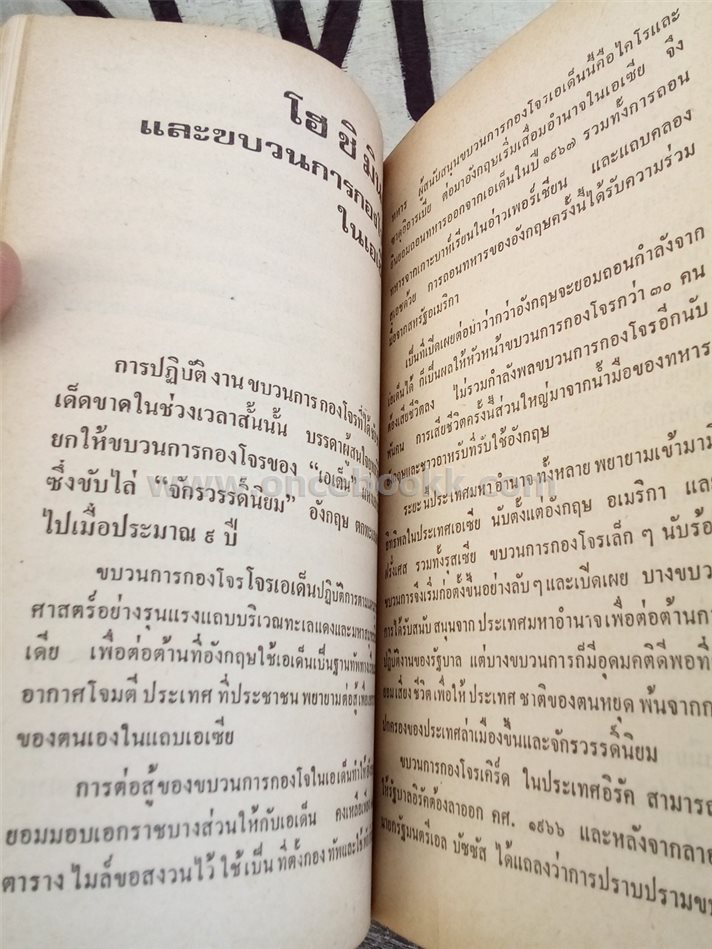 โฮ ชิ มิน
และขบวนการกองโ
ในเอเ
การปฏิบัติ งาน ขบวนการ กองโจรที่ได้
เด็ดขาดในช่วงเวลาสั้นนั้น บรรดาผู้สนใจ
ยกให้ขบวนการกองโจรของ “เอเด็น”
ซึ่งขับไล่ “จักรวรรดิ์นิยม” อังกฤษ
ไปเมื่อประมาณ ๙ ปี
ขบวนการกองโจรโจรเอเด็นปฏิบัติการตาม
ศาสตร์อย่างรุนแรงแถบบริเวณทะเลแดงและมหาสมุทร
เดีย เพื่อต่อต้านที่อังกฤษใช้เอเด็นเป็นฐานทัพทาง
อากาศโจมตี ประเทศ ที่ประชาชน พยายามต่อสู้เพื่อ
ของตนเองในแถบเอเซีย
การต่อสู้ของขบวนการกองโจในเอเด็นทำให้
ยอมมอบเอกราชบางส่วนให้กับเอเด็น คงเหลือ
ตาราง ไมล์ขอสงวนไว้ ใช้เป็น ที่ตั้งกอง ทัพและใช้
ทหาร ผู้สนับสนุนขบวนการกองโจรเอเด็นนี้คือไคโรและ
ซาอุดิอารเบีย ต่อมาอังกฤษเริ่มเสื่อมอำนาจในเอเซีย จึง
ยินยอมถอนทหารออกจากเอเด็นในปี ๑๙๖๗ รวมทั้งการถอน
ทหารจากเกาะบาห์เรียนในอ่าวเพอร์เซียน และแถบคลอง
สุเอซด้วย การถอนทหารของอังกฤษครั้งนี้ได้รับความร่วม
มือจากสหรัฐอเมริกา
เป็นที่เปิดเผยต่อมาว่ากว่าอังกฤษจะยอมถอนกำลังจาก
เอเด็นได้ ก็เป็นผลให้หัวหน้าขบวนการกองโจรกว่า ๓๐ คน
ต้องเสียชีวิตลง ไม่รวมกำลังพลขบวนการกองโจรอีกนับ
พันคน การเสียชีวิตครั้งนี้ส่วนใหญ่มาจากน้ำมือของทหาร
อังกฤษและชาวอาหรับที่รับใช้อังกฤษ
ระยะนั้นประเทศมหาอำนาจ ทั้งหลาย พยายามเข้ามามี
อิทธิพลในประเทศเอเซีย นับตั้งแต่อังกฤษ อเมริกา และ
ฝรั่งเศส รวมทั้งรุสเซีย ขบวนการกองโจรเล็ก ๆ นับร้อ
ขบวนการจึงเริ่มก่อตั้งขึ้นอย่างลับๆ และเปิดเผย บางขบว
การได้รับสนับ สนุนจาก ประเทศมหาอำนาจ เพื่อต่อต้านกา
ปฏิบัติงานของรัฐบาล แต่บางขบวนการก็มีอุดมคติดีพอที่
ยอม เสี่ยง ชีวิต เพื่อให้ ประเทศ ชาติของตนหยุด พ้นจากก
ปกครองของประเทศล่าเมืองขึ้นและจักรวรรดิ์นิยม
ขบวนการกองโจรเคิร์ด ในประเทศอิรัค สามารถ
ให้รัฐบาลอิรัคต้องลาออก คศ. ๑๙๖๖ และหลังจากลาอ
นายกรัฐมนตรีเอล บัซซัส ได้แถลงว่าการปราบปรามขบ
www.oncebookk.com